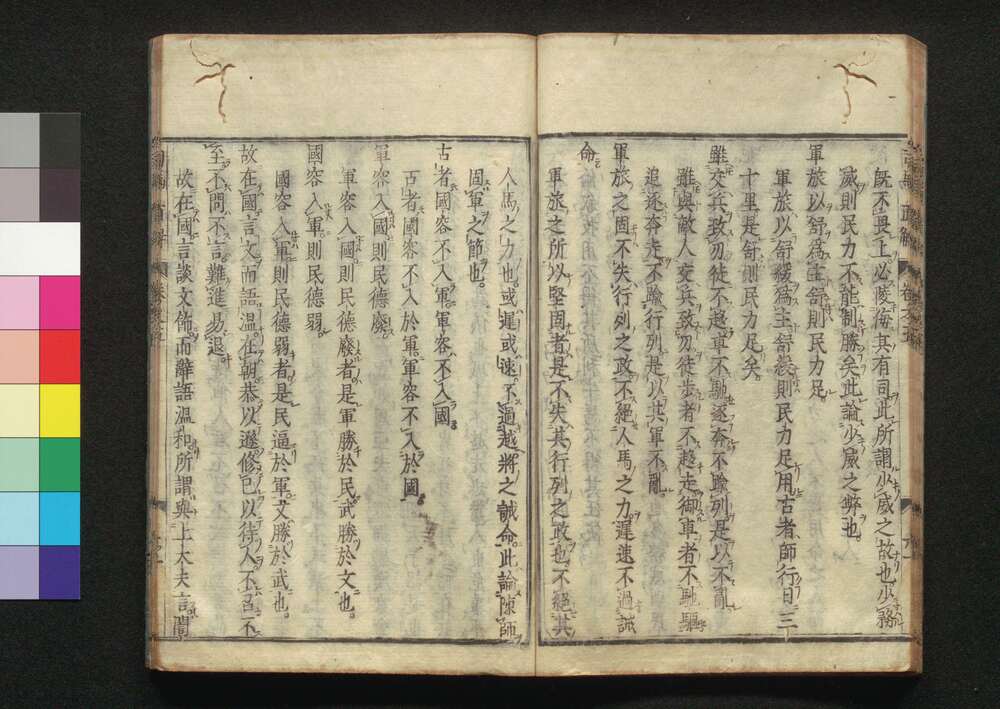 既不畏上必陵侮其有司此所謂少威之故也少務
威則民力不能制勝矣此論少威之弊也
軍旅以舒爲主舒則民力足
軍旅以舒緩爲主舒緩則民力足用古者師行日三
十里是舒則民力足矣
雖交兵致刃徒不趨車不馳逐奔不踰列是以不亂
雖與敵人交兵致刃徒歩者不趨走御車者不馳驅
追逐奔走不踰行列是以其軍不亂
軍旅之固不失行列之政不絕人馬之力遲速不過誡
命
軍旅之所以堅固者是不失其行列之政也不絕其
人馬之力也或遲或速不過越將之誡命此論陳師
固軍之節也
古者國容不入軍軍容不入國
古者國容不入於軍軍容不入於國
軍容入國則民德廢
軍容入國則民德廢者是軍勝於民武勝於文也
國容入軍則民德弱
國容入軍則民德弱者是民逼於軍文勝於武也
故在國言文而語溫在朝恭以遜修己以待人不召不
至不問不言難進易退
故在國言談文飾而辭語溫和所謂與上大夫言誾